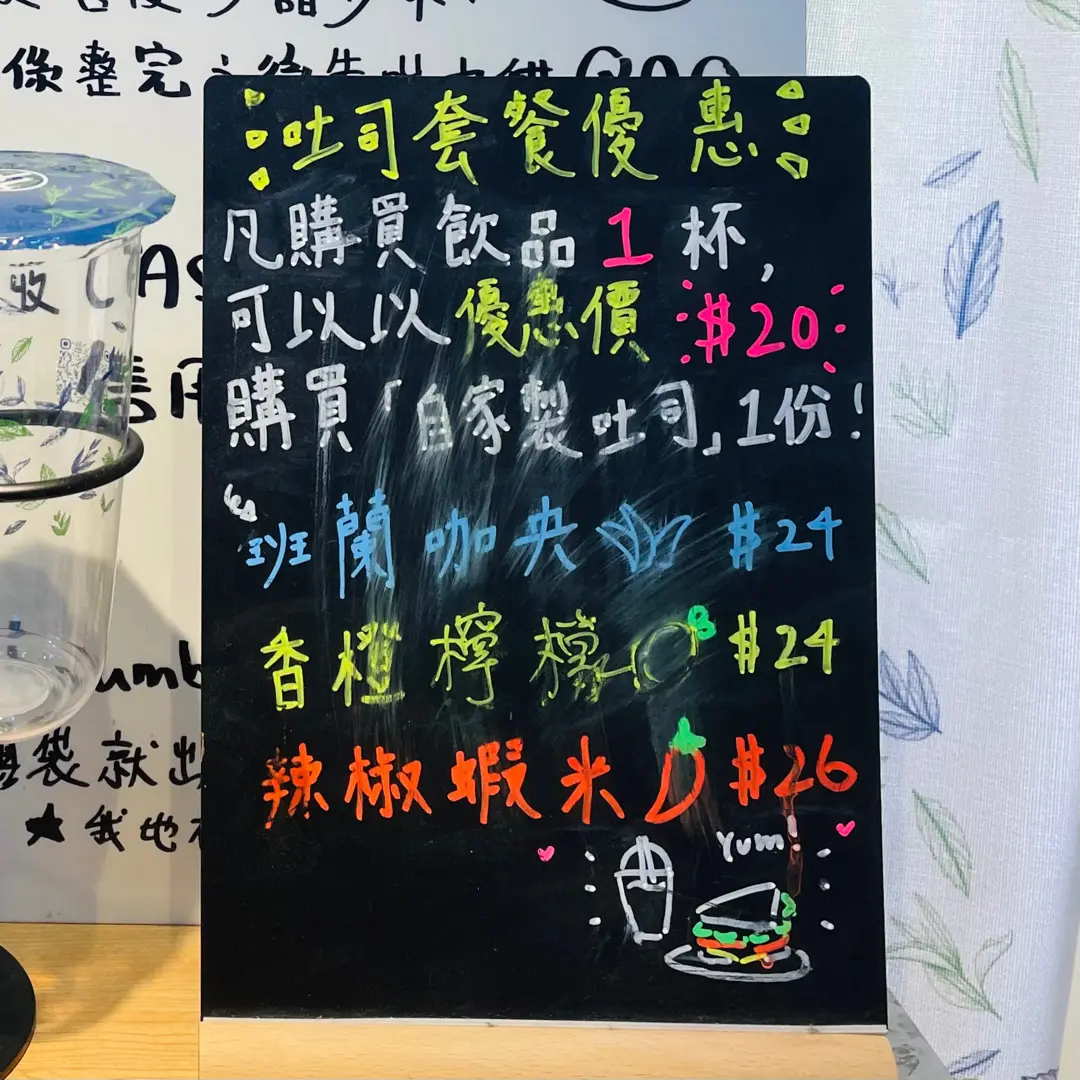 條整完
吐司套餐優惠
凡購買飲品1杯,
可以以優惠價 $20
購買「自家製吐司」1份!
班蘭咖央 $24
香橙檸檬 $24
辣椒蝦米 $26
Yum!
收 CAS
信用
umb
袋就出
★ 我也